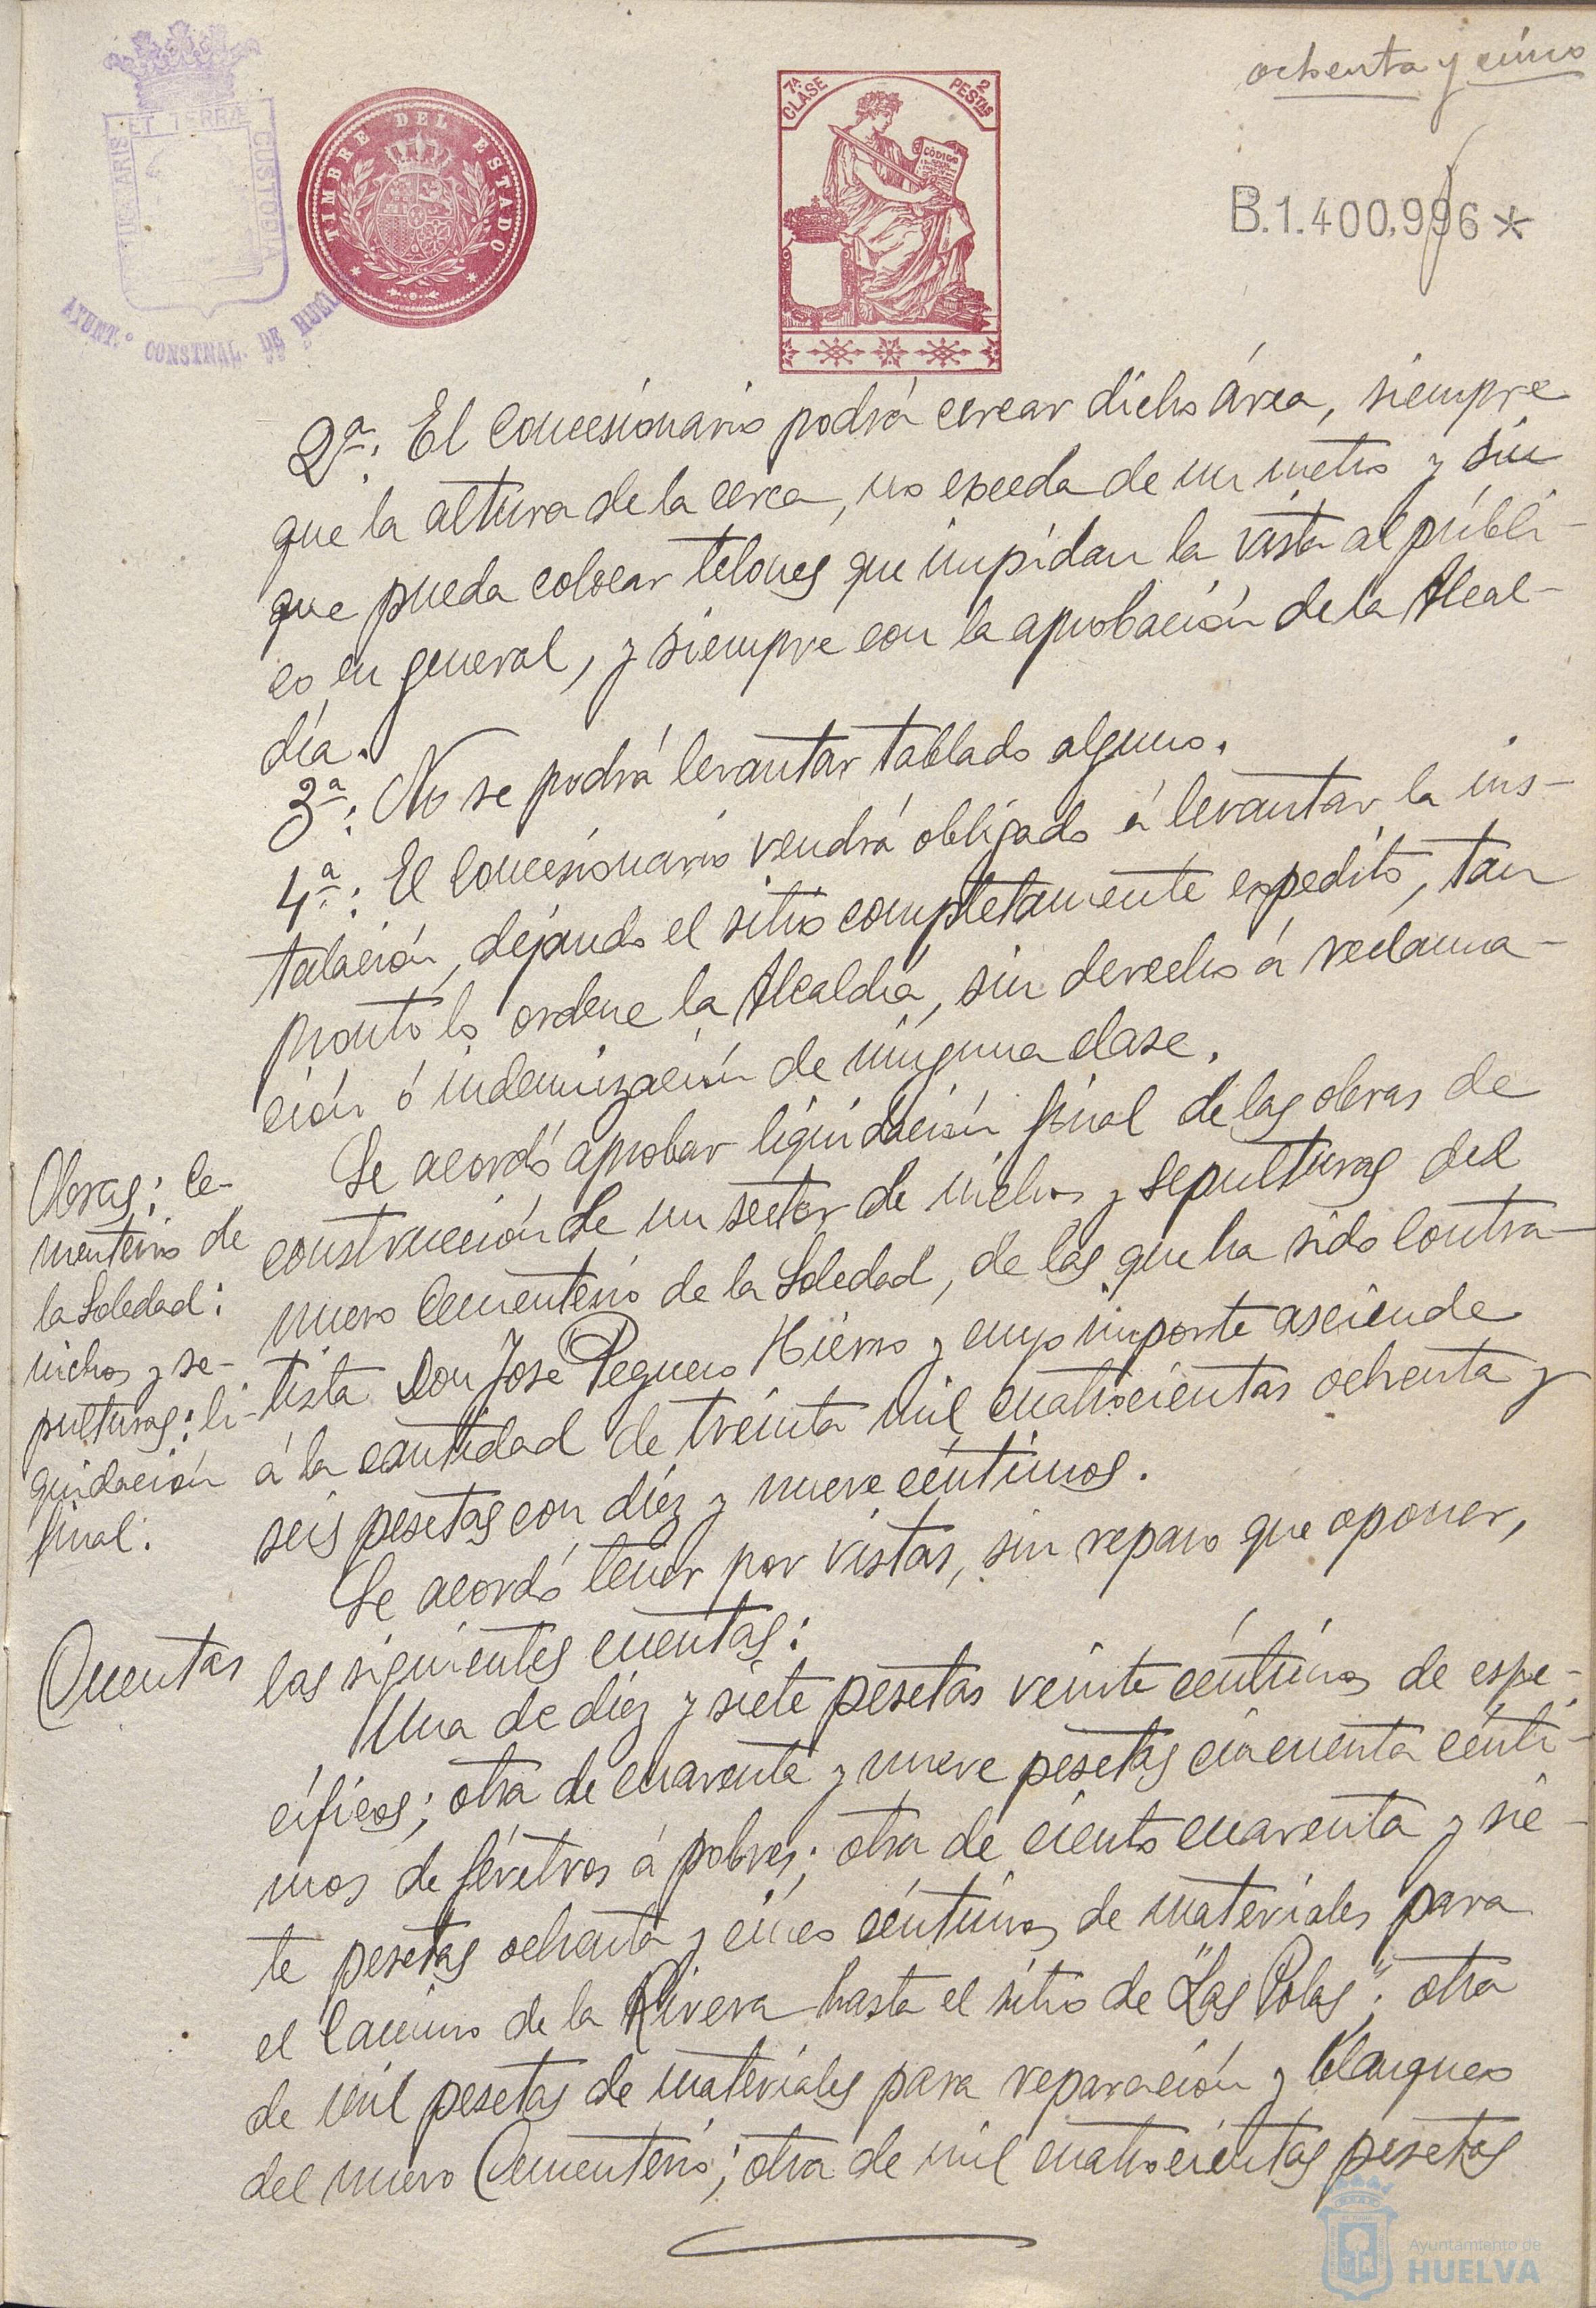 ochenta y cinco
PORTUS MARIS ET TERRÆ CUSTODIA
AYUNT.º CONSTNAL. DE HUELVA
TIMBRE DEL ESTADO
7ª CLASE
2 PESTAS
CÓDIGO
B.1.400.996*
2ª: El Concesionario podrá cercar dicho área, siempre
que la altura de la cerca, no exceda de un metro y sin
que pueda colocar telones que impidan la vista al públi-
co en general, y siempre con la aprobación de la Alcal-
día.
3ª: No se podrá levantar tablado alguno.
4ª: El Concesionario vendrá obligado á levantar la ins-
talación, dejando el sitio completamente expedito, tan
pronto lo ordene la Alcaldía, sin derecho á reclama-
ción ó indemnización de ninguna clase.
Obras: Ce-
menterio de
la Soledad:
nichos y se-
pulturas: li-
quidación
final:
Se acordó aprobar liquidación final de las obras de
construcción de un sector de nichos y sepulturas del
nuevo Cementerio de la Soledad, de las que ha sido Contra-
tista Don José Peguero Hierro y cuyo importe asciende
á la cantidad de treinta mil cuatrocientas ochenta y
seis pesetas con diez y nueve céntimos.
Cuentas
Se acordó tener por vistas, sin reparo que oponer,
las siguientes cuentas:
Una de diez y siete pesetas veinte céntimos de espe-
cíficos; otra de cuarenta y nueve pesetas cincuenta cénti-
mos de féretros á pobres; otra de ciento cuarenta y sie-
te pesetas ochenta y cinco céntimos de materiales para
el Camino de la Rivera hasta el sitio de "Las Polas"; otra
de mil pesetas de materiales para reparación y blanqueo
del nuevo Cementerio; otra de mil cuatrocientas pesetas
Ayuntamiento de
HUELVA